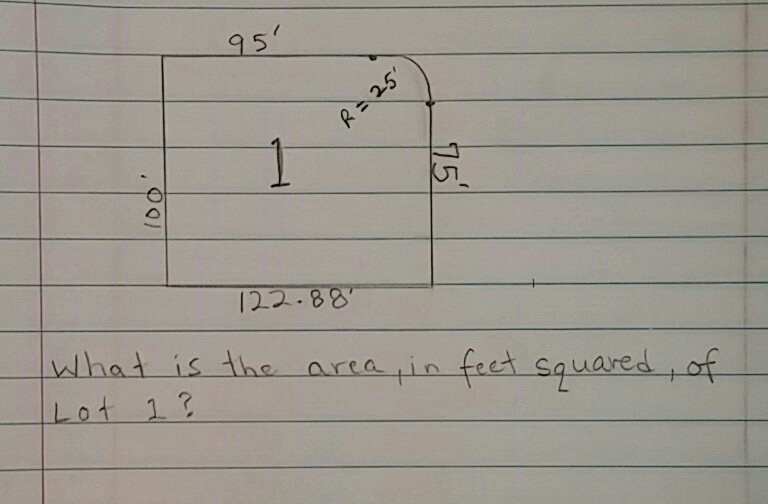 95'
R = 25'
1
75'
100'
122.88'
What is the area, in feet squared, of
Lot 1?